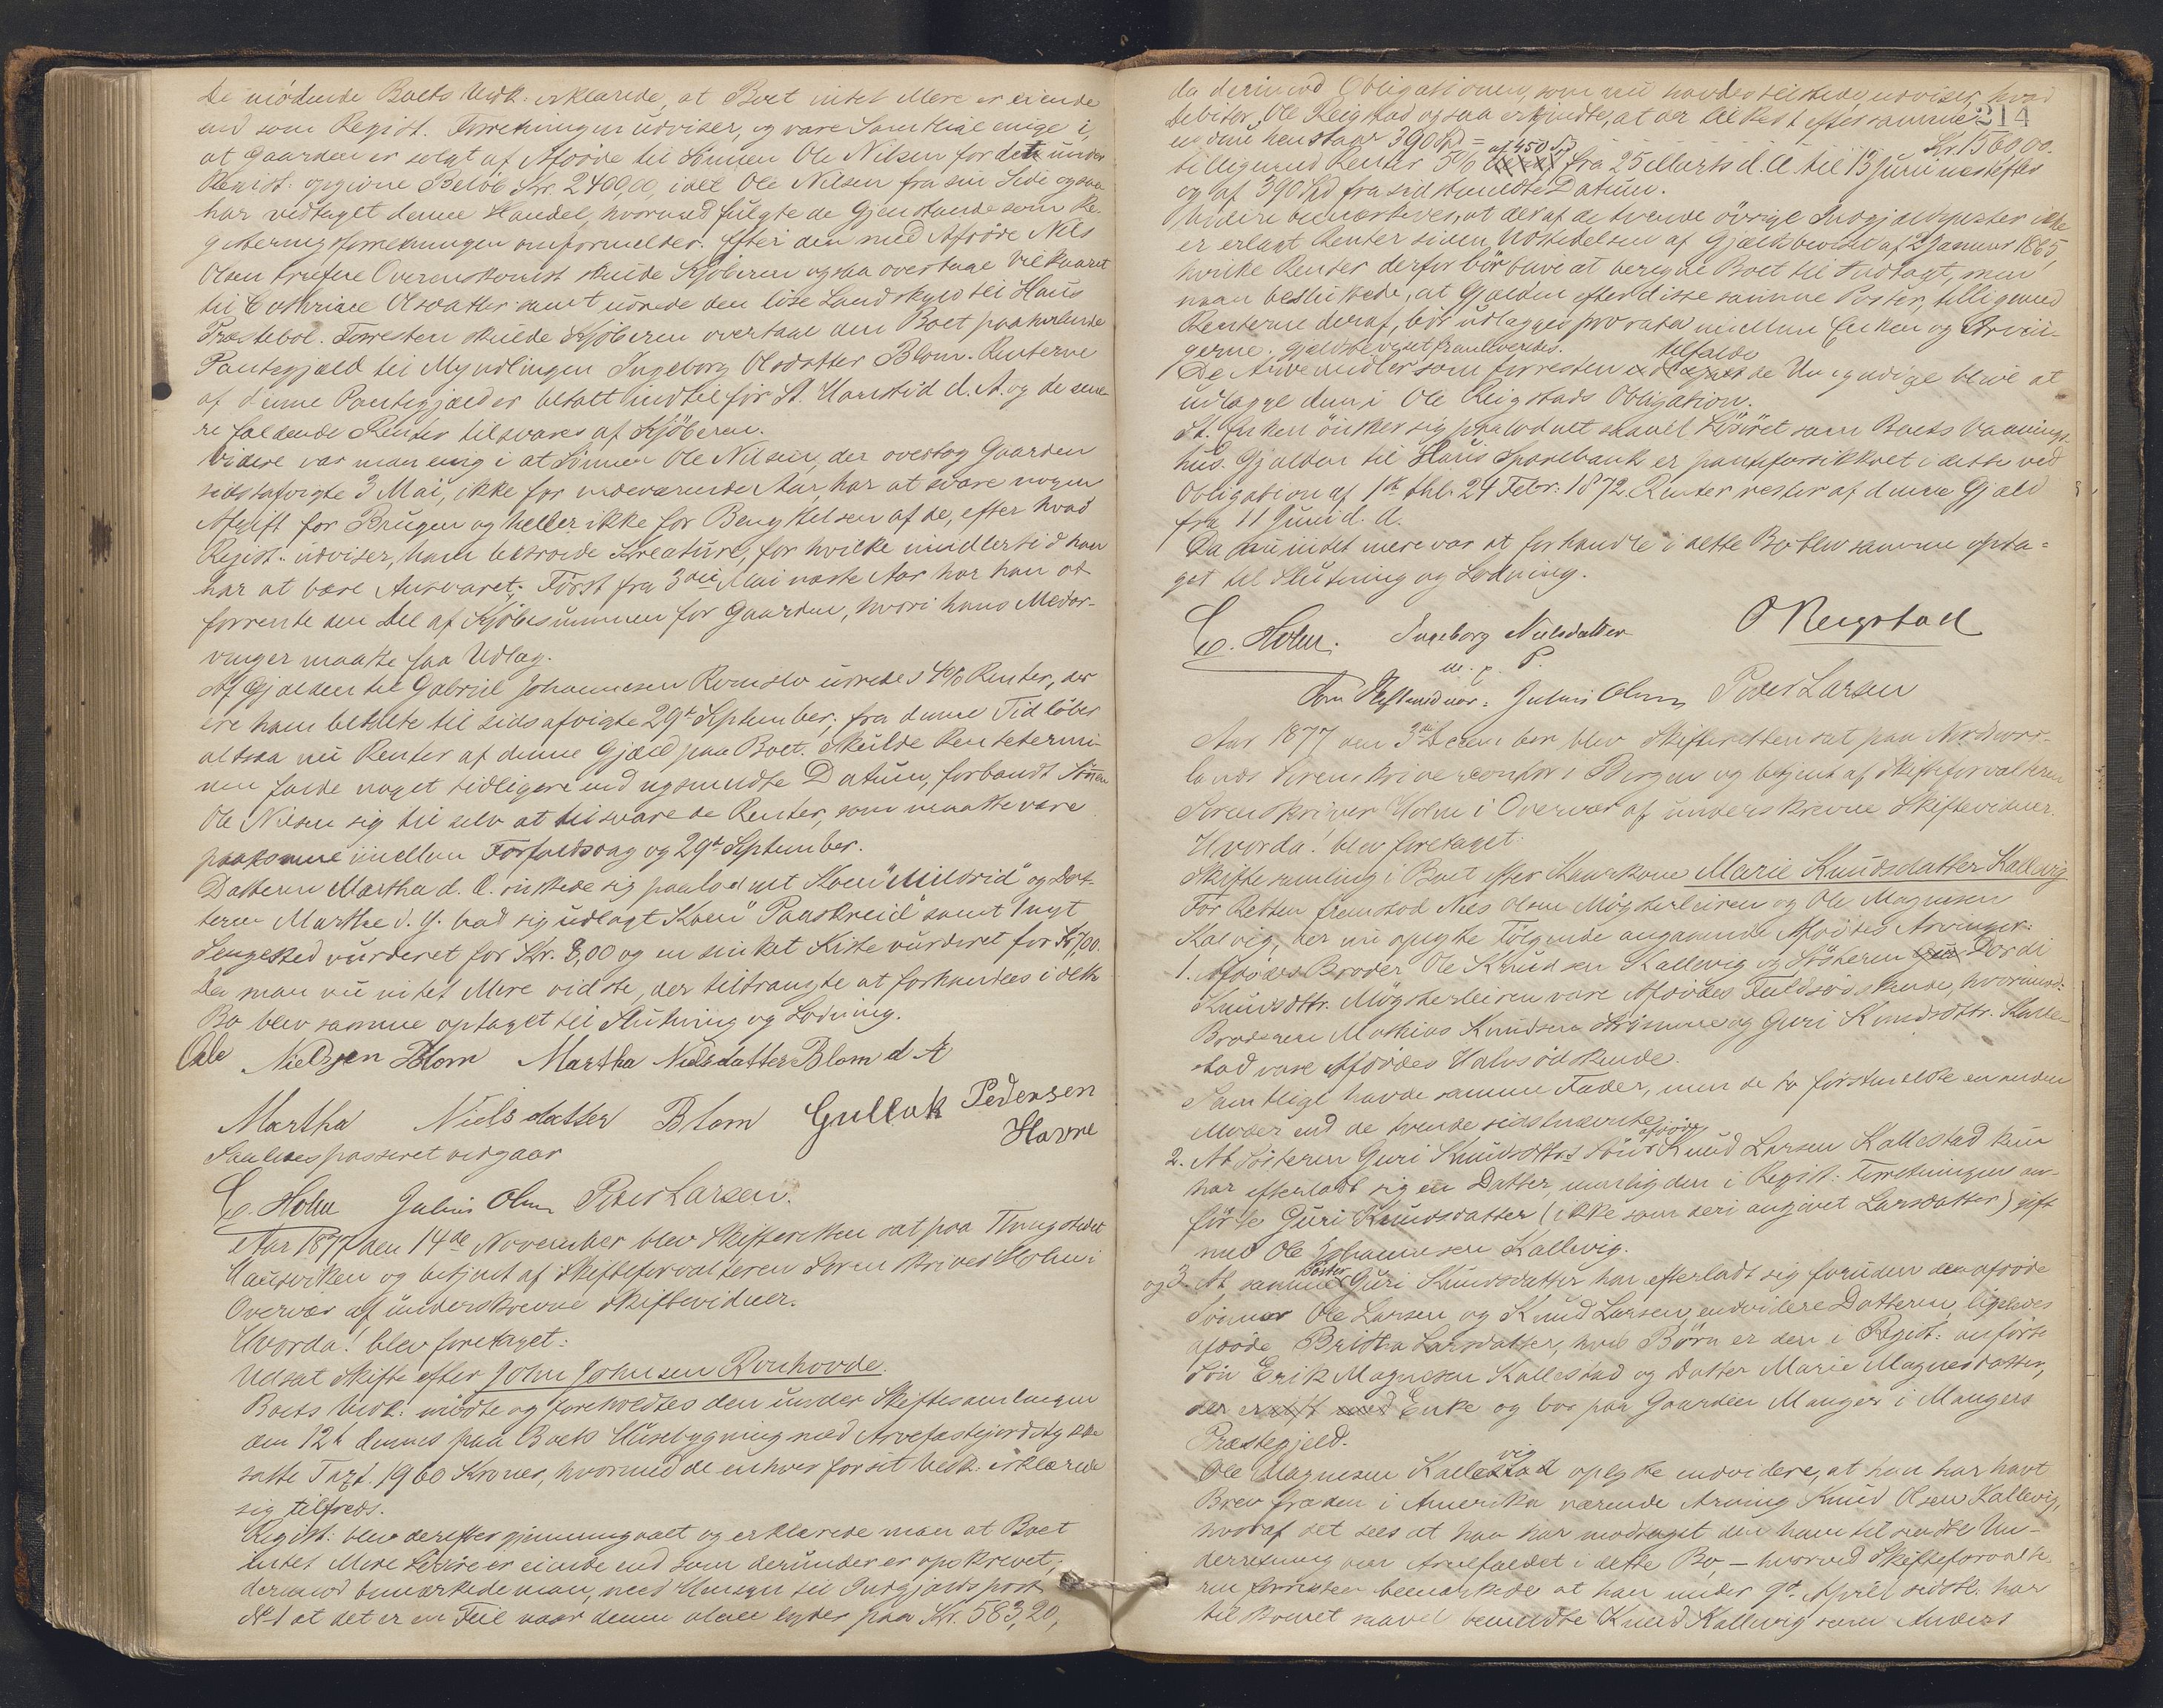 De mødende Boets Vedk: erklærede, at Boet intet Mere er eiende
end som Regist. Forretningen udviser, og vare Samtlige enige i,
at Gaarden er solgt af Afdøde til Sønnen Ole Nilsen for det under
Regist: opgivne Beløb Kr. 2400,00, idet Ole Nilsen fra sin Side ogsaa
har vedtaget denne Handel, hvormed fulgte de Gjenstande som Re-
gistreringsforretningen omformelder. Efter den med Afdøde Nils
Olsen trufne Overenskomst skulde Kjøberen ogsaa overtage Vilkaaret
til Cathrine Olsdatter samt udrede den løse Landskyld til Haus
Præstebol. Forresten skulde Kjøberen overtage den Boet paahvilende
Pantegjæld til Myndlingen Ingeborg Olsdatter Blom. Renterne
af denne Pantegjæld er betalt indtil før St. Hanstid d. A. og de sene-
re faldende Renter tilsvares af Kjøberen.
Videre var man enig i at Sønnen Ole Nilsen, der overtog Gaarden
sidstafvigte 3 Mai, ikke for nærværende Aar, har at svare nogen
Afgift for Brugen og heller ikke for Benyttelsen af de, efter hvad
Regist: udviser, ham betroede Kreature, for hvilke imidlertid han
har at bære Ansvaret; Først fra 3die Mai næste Aar har han at
forrente den Del af Kjøbesummen for Gaarden, hvori hans Medar-
vinger maatte faa Udlæg.
Af Gjælden til Gabriel Johannesen Romslo udredes 4% Renter, der
ere ham betalte til sidstafvigte 29de September; fra denne Tid løber
altsaa nu Renter af denne Gjæld paa Boet. Skulde Rentetermi-
nen falde noget tidligere end nysmeldte Datum, forbandt Sønnen
Ole Nilsen sig til selv at tilsvare de Renter, som maatte være
paakomne imellem Forfaldsdag og 29de September.
Datteren Martha d. Æ. ønskede sig paalodnet Koen "Mildrid" og Dat-
teren Marthe d. Y. bad sig udlagt Koen "Paaskreid" samt 1 nyt
Sengested vurderet for Kr. 8,00 og en simket Kiste vurderet for Kr. 7,00.
Da man nu intet Mere vidste, der tiltrængte at forhandles i dette
Bo blev samme optaget til Slutning og Lodning.
Ole Nielssen Blom Martha Nielsdatter Blom d Æ
Martha Nielsdatter Blom Gullak Pedersen
Havre
Saaledes passeret vidgaar
C. Holm Julius Olsen Peder Larsen.
Aar 1877 den 14de November blev Skifteretten sat paa Thingstedet
Hausviken og betjent af Skifteforvalteren Sorenskriver Holm i
Overvær af underskrevne Skiftevidner.
Hvorda! blev foretaget:
Udsat Skifte efter John Johnsen Ronhovde.
Boets Vedk: mødte og foreholdtes den under Skiftesamlingen
den 12te dennes paa Boets Husebygning med Arvefæstejordstykke
satte Taxt. 1960 Kroner, hvormed de enhver for sit Vedk. erklærede
sig tilfreds.
Regist: blev derefter gjennemgaaet og erklærede man at Boet
intet Mere Løsøre er eiende end som derunder er opskrevet;
derimod bemærkede man, med Hensyn til Indgjældspost
No 1 at det er en Feil naar denne alene lyder paa Kr. 583,20,
214
da derimod Obligationen, som nu havdes tilstede, udviser, hvad
Debitor, Ole Reigstad ogsaa erkjendte, at der til Rest efter samme
endnu henstaar 390 Spd = Kr. 1560,00.
af 450 Spd
tilligemed Renter 5% fra 25 Marts d. A. til 13 Juni næstefter
og af 390 Spd fra sidstmeldte Datum.
Videre bemærkedes, at der af de tvende øvrige Indgjældsposter ikke
er erlagt Renter siden Udstedelsen af Gjældsbeviset af 2 Januar 1865,
hvilke Renter derfor bør blive at beregne Boet til Indtægt, men
man besluttede, at Gjælden efter disse samme Poster, tilligemed
Renterne deraf, bør udlægges pro rata mellem Enken og Arvin-
gerne. Gjeldbeviset fremleveredes.
tilfalde
De Arvemidler som forresten de Umyndige blive at
udlægge dem i Ole Reigstads Obligation.
St. Enken ønsker sig paalodnet saavel Løsøret som Boets Vaanings-
hus. Gjælden til Haus Sparebank er panteforsikkret i dette ved
Obligation af 1ste thl. 24 Febr: 1872. Renter rester af denne Gjæld
fra 11 Juni d. A.
Da nu intet mere var at forhandle i dette Bo blev samme opta-
get til Slutning og Lodning.
C. Holm. Ingeborg Nielsdatter O Reigstad
m. p. P.
Som Skiftevidner: Julius Olsen Peder Larsen
Aar 1877 den 3die December blev Skifteretten sat paa Nordhord-
lands Sorenskrivercontor i Bergen og betjent af Skifteforvalteren
Sorenskriver Holm i Overvær af underskrevne Skiftevidner.
Hvorda! blev foretaget:
Skiftesamling i Boet efter Kaarkone Marie Knudsdatter Kallevig
For Retten fremstod Nils Olsen Møgsterleiren og Ole Magnesen
Kalvig, der nu oplyste Følgende angaaende Afdødes Arvinger:
1. Afdødes Broder Ole Knudsen Kallevig og Søsteren Dordi
Knudsdttr. Møgsterleiren vare Afdødes Fuldsødskende, hvorimod:
Brødrene Mathias Knudsen Strømme og Guri Knudsdttr. Kalle-
stad vare Afdødes Halvsødskende.
Samtlige havde samme Fader, men de to førstmeldte en anden
Moder end de tvende sidstnævnte.
afdøde
2. At Søsteren Guri Knudsdttrs Søn Knud Larsen Kallestad kun
har efterladt sig en Datter, nemlig den i Regist: Forretningen an-
førte Guri Knudsdatter (ikke som deri angivet Larsdatter) gift
med Ole Johannesen Kallevig.
Søster
og 3. At samme Guri Knudsdatter har efterladt sig foruden den afdøde
Sønner Ole Larsen og Knud Larsen, endvidere Datteren, ligeledes
afdøde Britha Larsdatter, hvis Børn er den i Regist: anførte
Søn Erik Magnesen Kallestad og Datter Marie Magnesdatter,
der er gift med Enke og bor paa Gaarden Manger i Mangers
Præstegjeld.
vig
Ole Magnesen Kallestad oplyste endvidere, at han har havt
Brev fra den i Amerika værende Arving Knud Olsen Kallevig,
hvoraf det sees at han har modtaget den ham tilsendte Un-
derretning om Arvefaldet i dette Bo, – hvorved Skifteforvalte-
ren forresten bemærkede at han under 9de April sidstl. har
tilskrevet saavel bemeldte Knud Kallevig som Anders